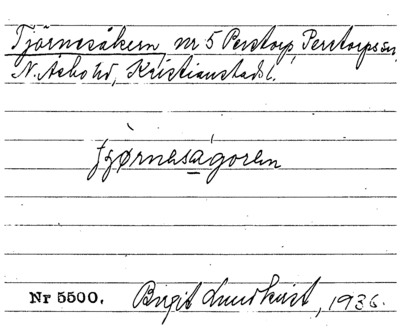 Tjörnesåkern, nr 5 Perstorp, Perstorps sn,
N. Åsbo hd, Kristianstads l.
Nr 5500. Birgit Lundkvist, 1936.